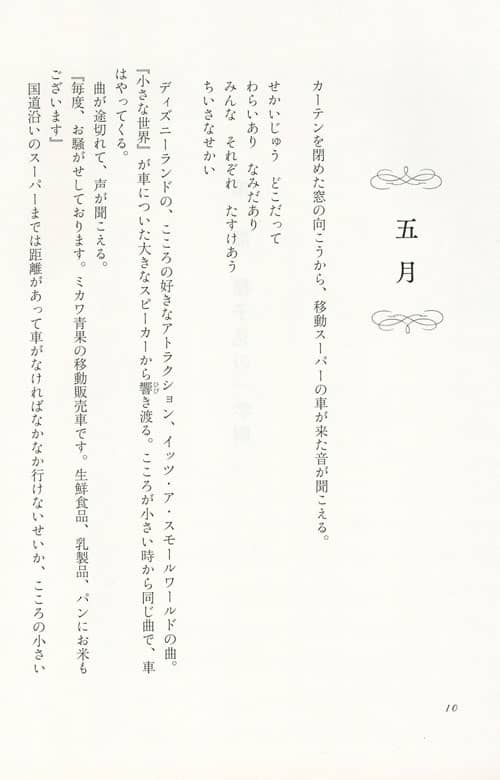 五月
カーテンを閉めた窓の向こうから、移動スーパーの車が来た音が聞こえる。
せかいじゅう　どこだって
わらいあり　なみだあり
みんな　それぞれ　たすけあう
ちいさなせかい
ディズニーランドの、こころの好きなアトラクション、イッツ・ア・スモールワールドの曲。
『小さな世界』が車についた大きなスピーカーから響き渡る。こころが小さい時から同じ曲で、車
ひび
はやってくる。
曲が途切れて、声が聞こえる。
『毎度、お騒がせしております。ミカワ青果の移動販売車です。生鮮食品、乳製品、パンにお米も
ございます』
国道沿いのスーパーまでは距離があって車がなければなかなか行けないせいか、こころの小さい
10